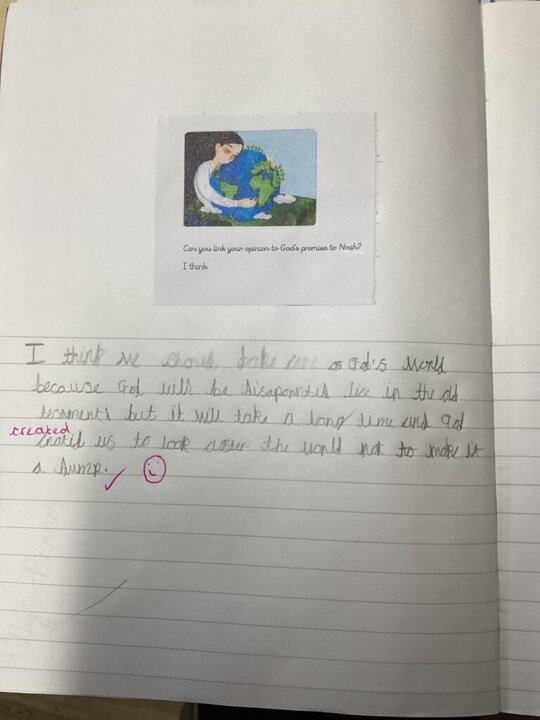 Can you link your opinion to God's promise to Noah?
I think
I think we shoud take care of God's World
because God will be disapointed like in the old
testements but it will take a long time and God
created
created us to look after the world not to make it
a dump.